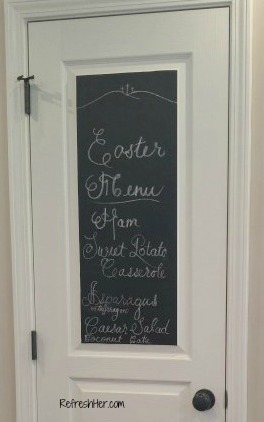 Easter
Menu
Ham
Sweet Potato
Casserole
Asparagus
Caesar Salad
Coconut Cake
RefreshHer.com